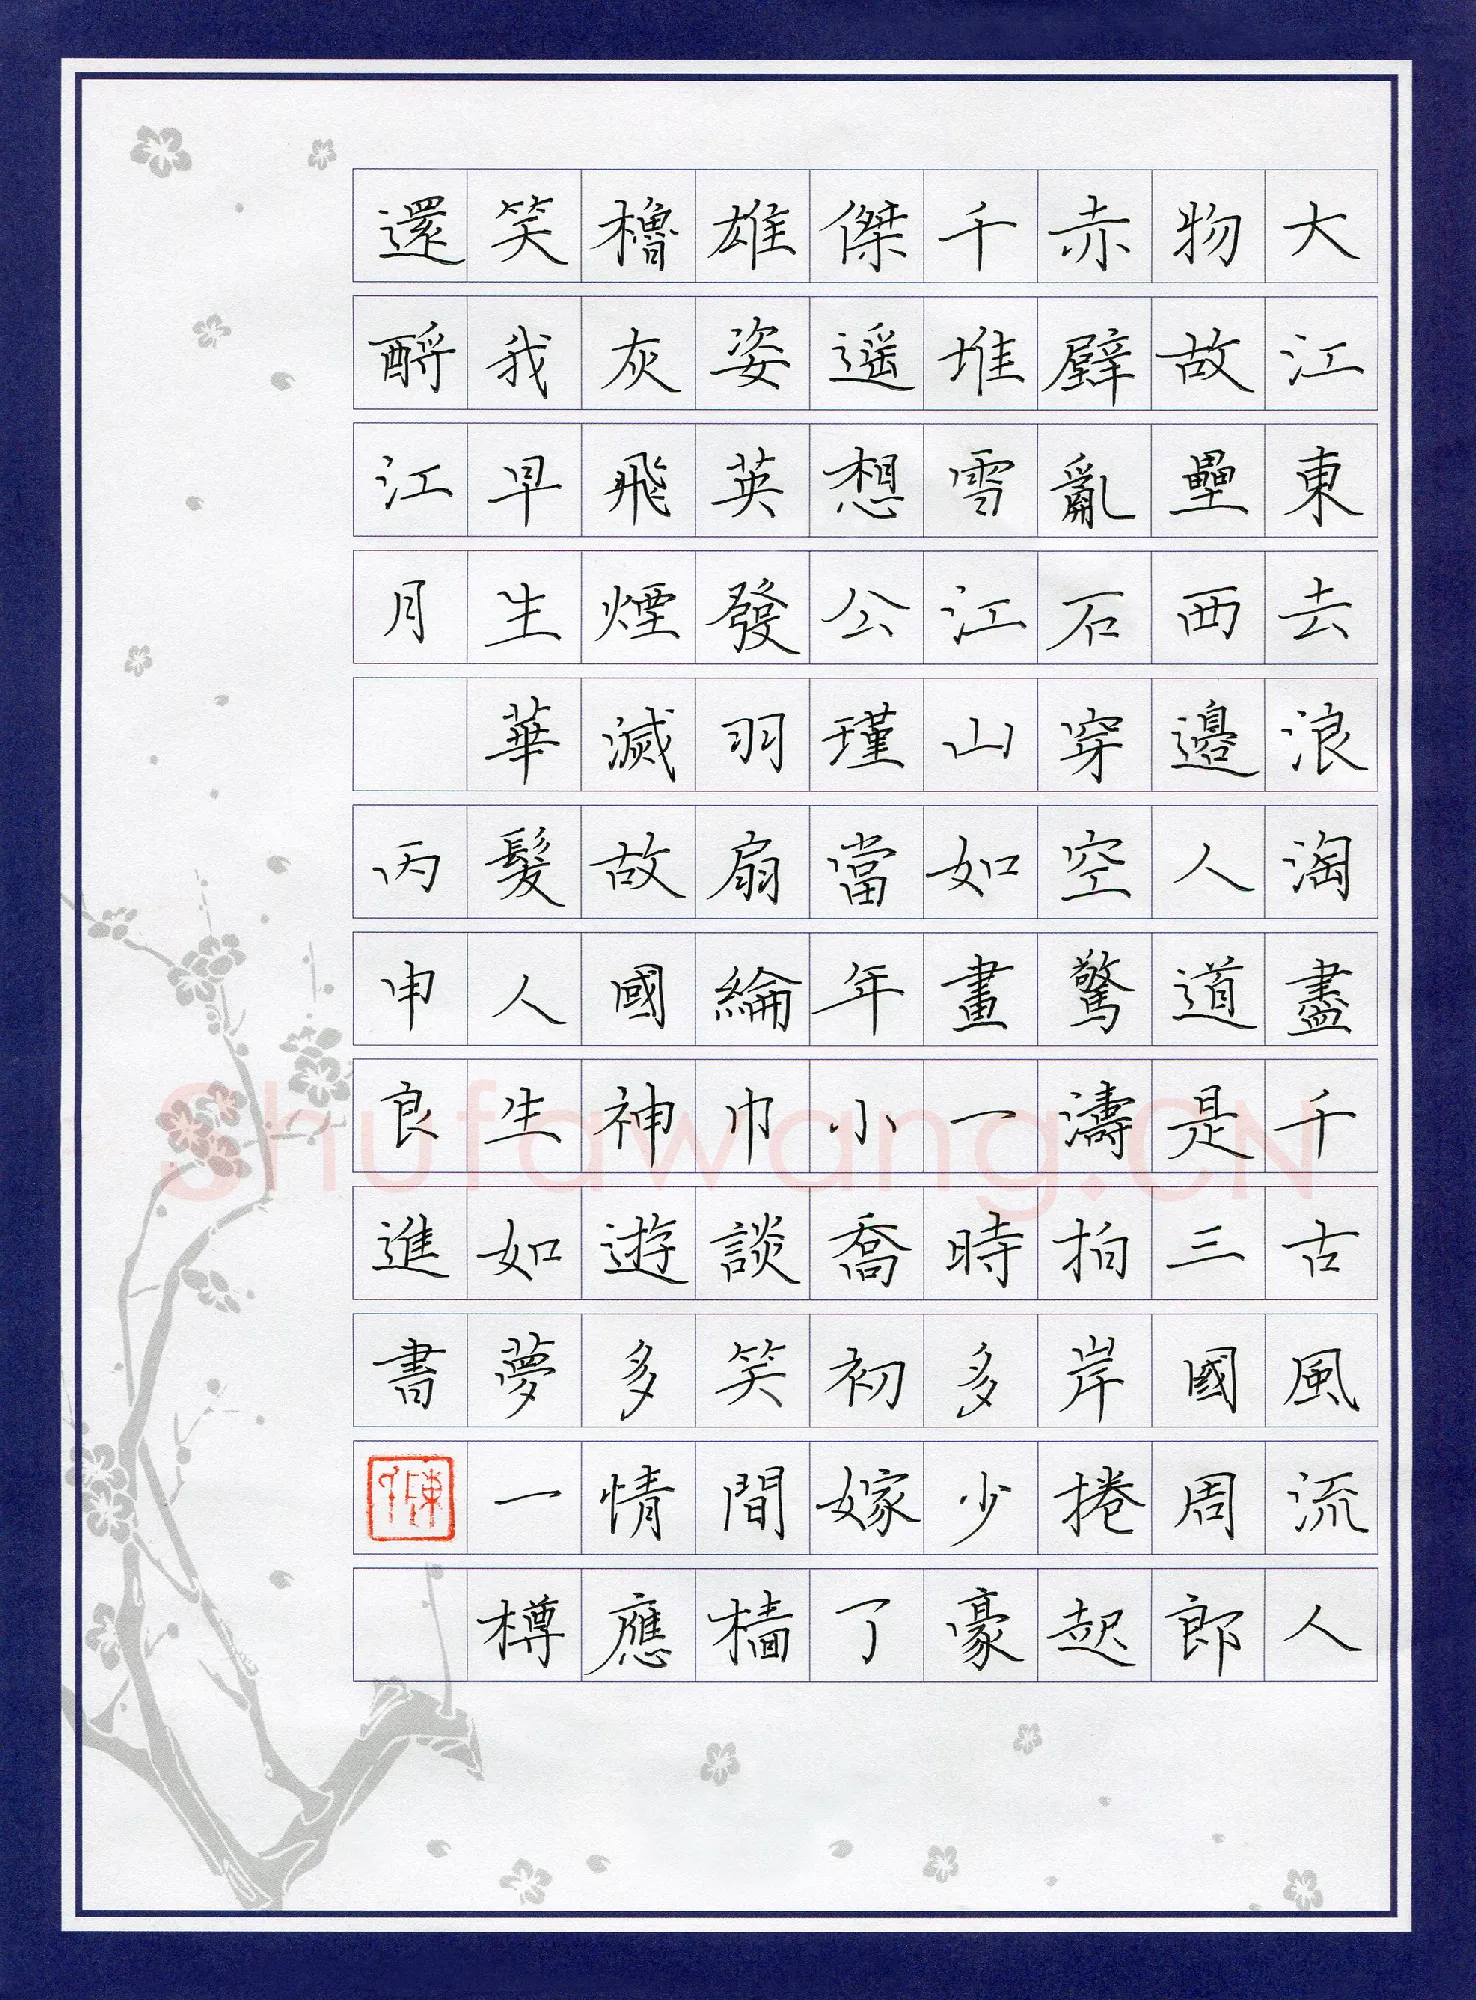 大江東去浪淘盡千古風流人
物故壘西邊人道是三國周郎
赤壁亂石穿空驚濤拍岸捲起
千堆雪江山如畫一時多少豪
傑遥想公瑾當年小喬初嫁了
雄姿英發羽扇綸巾談笑間檣
櫓灰飛煙滅故國神遊多情應
笑我早生華髮人生如夢一樽
還酹江月 丙申良進書
Shufawang.CN